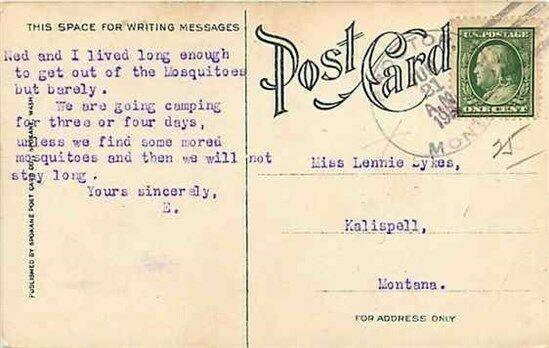 THIS SPACE FOR WRITING MESSAGES
Ned and I lived long enough
to get out of the Mosquitoes
but barely.
We are going camping
for three or four days,
unless we find some mored
mosquitoes and then we will not
stay long.
Yours sincerely,
E.
PUBLISHED BY SPOKANE POST CARD CO., SPOKANE, WASH.
Post Card
U.S. POSTAGE
ONE CENT
A.M.
MONT
25
Miss Lennie Sykes,
Kalispell,
Montana.
FOR ADDRESS ONLY